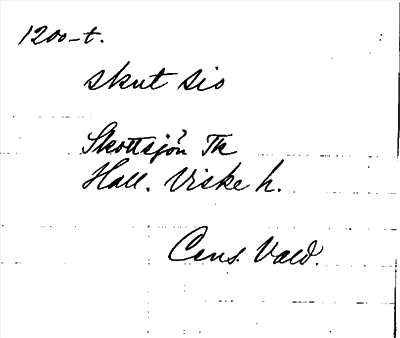 1200-t.
skut sio
?
Skottsjön Tk
Hall. Viske h.
Cens. Vald.